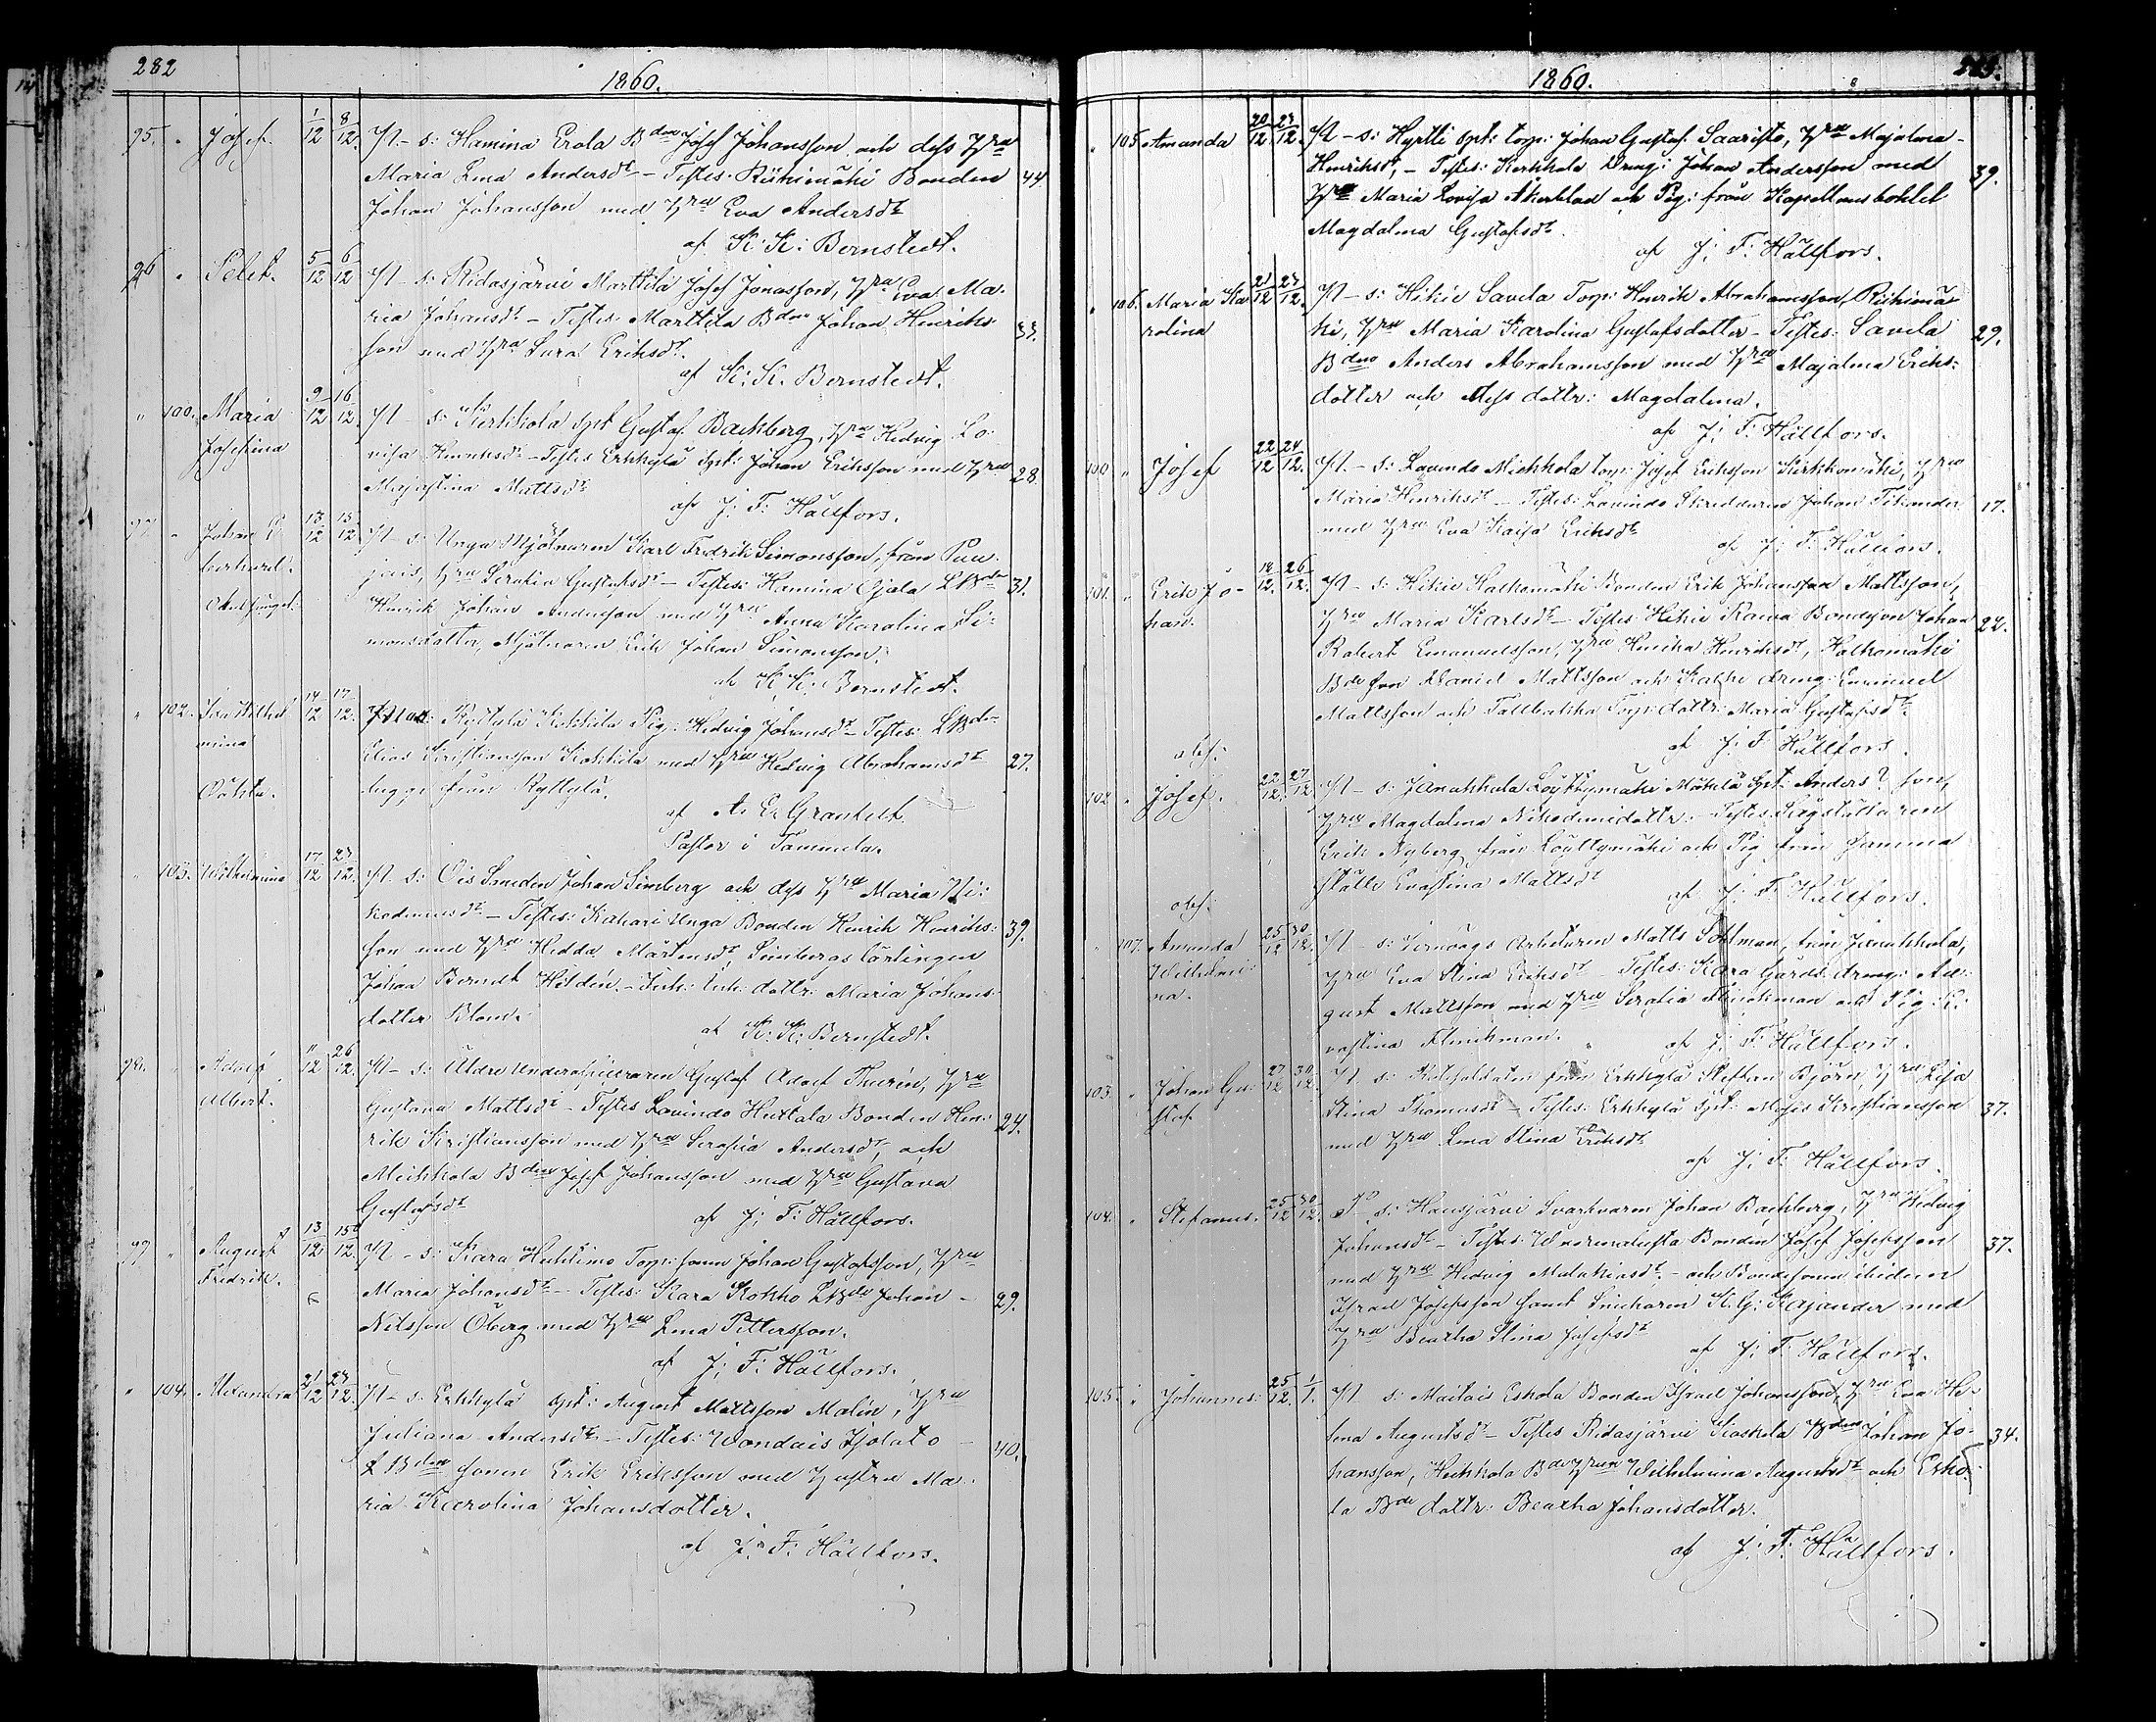 282
1860.
95. " Josef 1/12 8/12. Pt - s: Hamina Erola Bden Josef Johansson och dess Hru
Maria Lena Andersdr - Testes: Riihimäki Bonden 44
Johan Johansson med Hru Eva Andersdr
af K: K: Bernstedt.
96 " 5/12 6/12 Pt - s: Ridasjärvi Marttila Josef Jonasson, Hru Eva Ma-
ria Johansdr - Testes Marttila Bden Johan Henriks- 33.
son med Hru Sara Eriksdr.
af K: K. Bernstedt.
" 100. Maria 9/12 16/12. Pt - s: Kerkkola Spt Gustaf Backberg, Hru Hedvig Lo-
Josefina visa Henriksdr - Testes Erkkylä Spt: Johan Eriksson med Hru 28.
Majastina Mattsdr
af J: F: Hällfors.
97 " Johan 13/12 15/12 Pt - s: Unga Mjölnaren Karl Fredrik Simonsson, från
Hru Serafia Gustafsdr - Testes: Hamina Ojala 31.
Henrik Johan Andersson med Hru Anna Karolina Si-
monsdotter, Mjölnaren Erik Johan Simonsson.
af K: K: Bernstedt.
" 102. Ida Wilhel- 14/12 17/12. Ryttylä Kokkila Pig: Hedvig Johansdr - Testes:
mina Elias Kristiansson Kokkila med Hru Hedvig Abrahamsdr 27.
Oäkta. från Ryttylä.
af A. E. Granfelt
Pastor i Tammela.
" 103. Wilhelmina 17/12 23/12. Pt - s: Ois Smeden Johan Limberg och dess Hru Maria Ni-
kodemusdr - Testes: Kahari Unga Bonden Henrik Henriks- 39.
son med Hru Hedda Mårtensdr Limbergs lärlingen
Johan Berndt Hildén. - Inh: dottr. Maria Johans-
dotter Blom.
af K: K: Bernstedt.
98. " Adolf 11/12 26/12. Pt - s: Äldre Gustaf Adolf Thurén, Hru
Albert. Gustava Mattsdr - Testes Lavindo Huttala Bonden Hen- 24.
rik Kristiansson med Hru Serafia Andersdr, och
Meikkola Bden Josef Johansson med Hru Gustava
Gustafsdr
af J: F: Hällfors.
99 " August 13/12 15/12. Pt - s: Kara Huhtimo Torp: sonen Johan Gustafsson, Hru
Fredrik. Maria Johansdr - Testes: Kara Kokko Johan - 29.
Nilsson Öberg med Hru Lena Pettersson.
af J: F: Hällfors.
" 104. Alexandra 21/12 23/12. Pt - s: Erkkylä Spt: August Mattsson Malin, Hru
Juliana Andersdr - Testes: Wondais Isotato - 40.
L Bden sonen Erik Eriksson med Hustru Ma-
ria Karolina Johansdotter.
af J: F: Hällfors.
1860.
" 105 Amanda 20/12 23/12. Pt - s: Hyrtti Spt: torp: Johan Gustaf Saaristo, Hru Majalena
Henriksdr, - Testes: Kerkkola Dreng: Johan Andersson med 39.
Hru Maria Lovisa Åkerblad och Pig: från Kapellansbohlet
Magdalena Gustafsdr.
af J: F: Hällfors.
" 106. Maria Ka- 21/12 23/12. Pt - s: Hikiä Savela Torp: Henrik Abrahamsson, Riihimä-
rolina ki, Hru Maria Karolina Gustafsdotter - Testes: Savela 29.
Bden Anders Abrahamsson med Hru Majalena Eriks-
dotter och dess dottr: Magdalena.
af J: F: Hällfors.
100 " Josef 22/12 24/12. Pt - s: Lavindo Miekkola torp: Josef Eriksson Kirkkomäki, Hru
Maria Henriksdr - Testes: Lavindo Skreddaren Johan Tikander 17.
med Hru Eva Kaisa Eriksdr
af J: F: Hällfors.
101. " Erik Jo- 18/12. 26/12. Pt - s: Hikiä Kalkomäki Bonden Erik Johansson Mattsson,
han. Hru Maria Karlsdr - Testes Hikiä Bondeson Johan 22.
Robert Emanuelsson, Hru Henrika Henriksdr, Kalkomäki
Bde son Daniel Mattsson och dreng: Emanuel
Mattsson och Tallbacka Torp: dottr: Maria Gustafsdr.
af J: F: Hällfors.
102 " Josef. 22/12. 27/12. Pt - s: Janakkala Löyttymäki Mäkelä Spt: Anders ? son,
Hru Magdalena Nikodemidottr. - Testes
Erik Nyberg från Löyttymäki och Pig från samma
ställe Evastina Mattsdr
af J: F: Hällfors.
" 107. Amanda 25/12 30/12. Pt - s: Jernvägs Arbetaren Matts Sottman, från Janakkala,
Wilhelmi- Hru Eva Stina Eriksdr - Testes: Kara Gårds dreng: Au-
na. gust Mattsson med Hru Serafia Flinkman och Pig: E-
vastina Flinkman.
af J: F: Hällfors.
103. " Johan Gu- 27/12 30/12. Pt - s: från Erkkylä Steffan Björn, Hru Lisa
staf Stina Thomasdr - Testes: Erkkylä Spt: Moses Kristiansson 37.
med Hru Lena Stina Eriksdr
af J: F: Hällfors.
104. " Stefanus. 25/12 30/12. Pt - s: Hausjärvi Svarfvaren Johan Backberg, Hru Hedvig
Johansdr - Testes: Bonden Josef Josefsson 37.
med Hru Hedvig Malakiasdr - och Bondesonen ibidem
Israel Josefsson samt Snickaren K. G: Kajander med
Hru Beatha Stina Josefsdr
af J: F: Hällfors.
105. " Johannes 25/12. 1/1. Pt - s: Maitais Eskola Bonden Israel Johansson, Hru Eva He-
lena Augustsdr - Testes Ridasjärvi Bden Johan Jo- 34.
hansson, Heikkola Bde Hrun Wilhelmina Augustsdr och Esko-
la Bde dottr: Beatha Johansdotter.
af J: F: Hällfors.